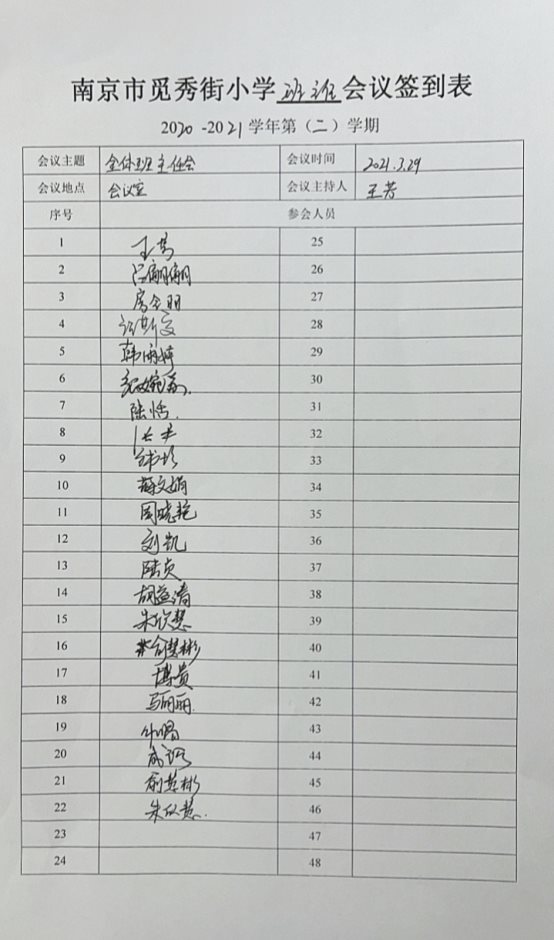 南京市觅秀街小学班主任会议签到表
2020-2021学年第（二）学期
会议主题 全体班主任会 会议时间 2021.3.29
会议地点 会议室 会议主持人 王芳
序号 参会人员
1 王芳 25
2 吕翩翩 26
3 27
4 28
5 韩雨婷 29
6 30
7 陆恬. 31
8 32
9 33
10 蔡文娟 34
11 周晓艳 35
12 刘凯 36
13 陆贞 37
14 胡益清 38
15 朱欣慧 39
16 40
17 41
18 马丽丽 42
19 43
20 44
21 45
22 朱欣慧. 46
23 47
24 48